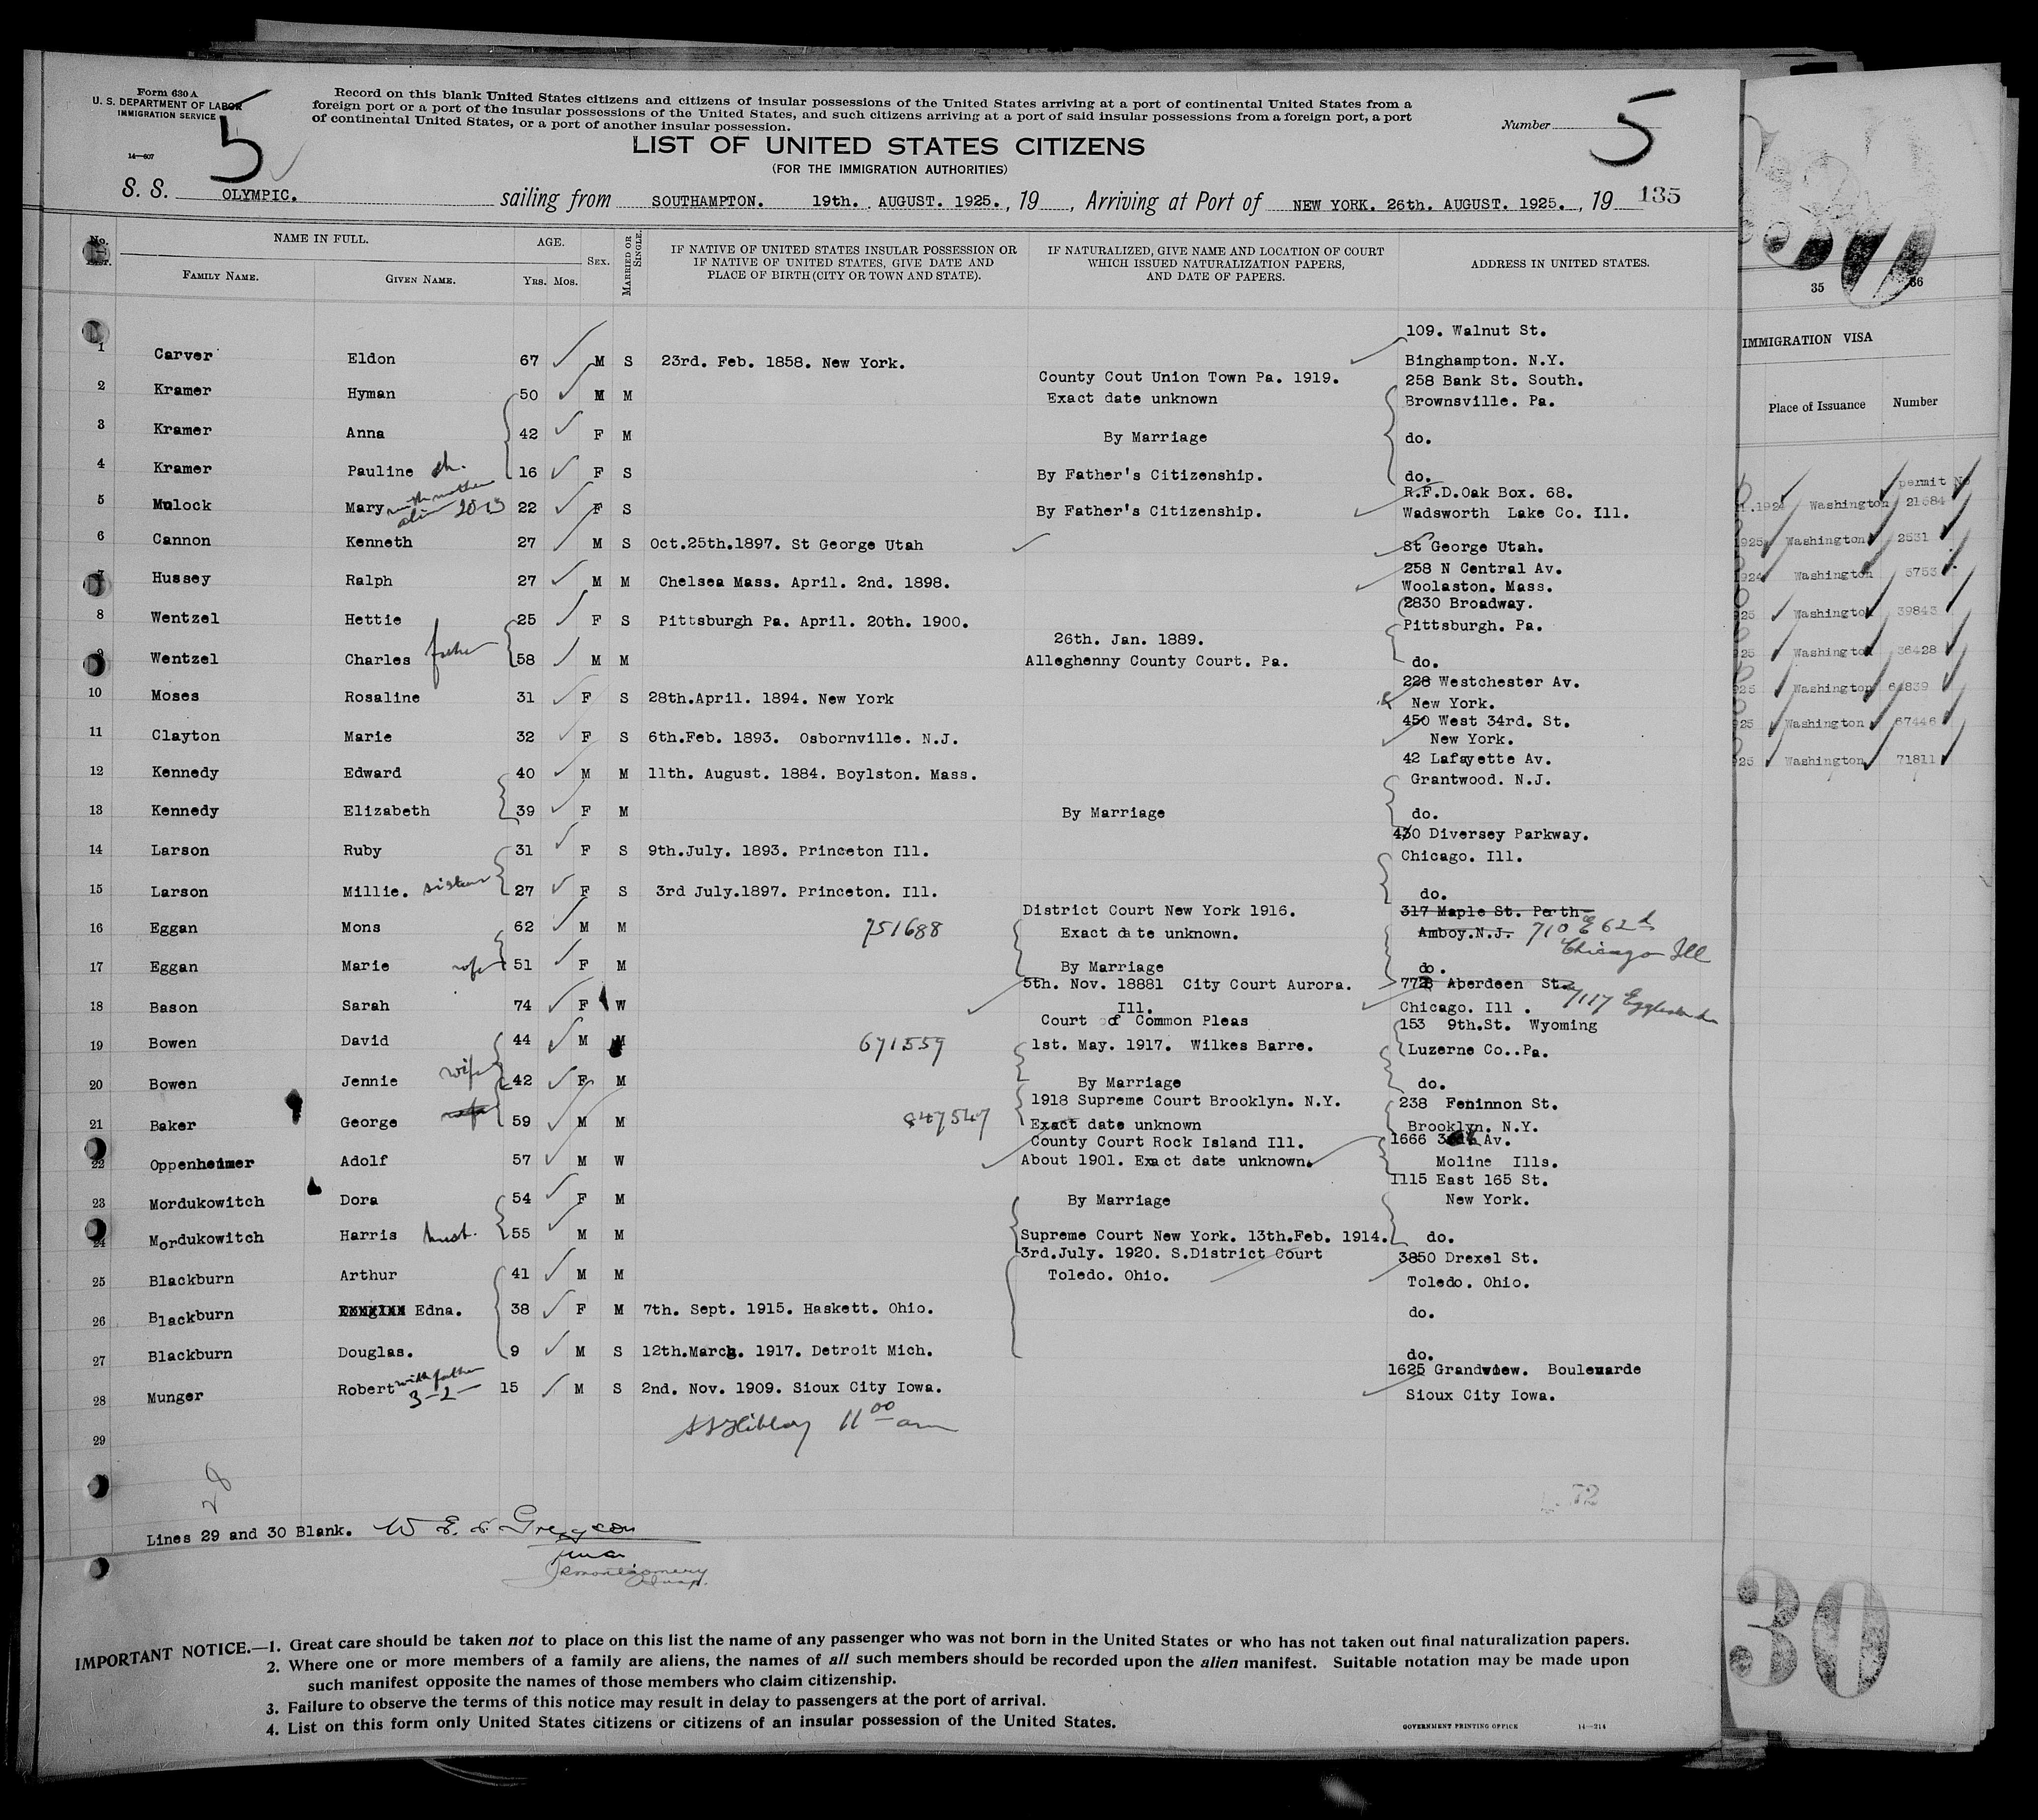 Form 630 A
U. S. DEPARTMENT OF LABOR
IMMIGRATION SERVICE
14—607
5
Record on this blank United States citizens and citizens of insular possessions of the United States arriving at a port of continental United States from a
foreign port or a port of the insular possessions of the United States, and such citizens arriving at a port of said insular possessions from a foreign port, a port
of continental United States, or a port of another insular possession.
Number 5
LIST OF UNITED STATES CITIZENS
(FOR THE IMMIGRATION AUTHORITIES)
S. S. OLYMPIC. sailing from SOUTHAMPTON. 19th. AUGUST. 1925. , 19 , Arriving at Port of NEW YORK. 26th. AUGUST. 1925. , 19 135
No. NAME IN FULL. AGE. SEX. MARRIED OR SINGLE. IF NATIVE OF UNITED STATES INSULAR POSSESSION OR IF NATIVE OF UNITED STATES, GIVE DATE AND PLACE OF BIRTH (CITY OR TOWN AND STATE). IF NATURALIZED, GIVE NAME AND LOCATION OF COURT WHICH ISSUED NATURALIZATION PAPERS, AND DATE OF PAPERS. ADDRESS IN UNITED STATES.
FAMILY NAME. GIVEN NAME. YRS. MOS.
109. Walnut St.
1 Carver Eldon 67 M S 23rd. Feb. 1858. New York. Binghampton. N.Y.
County Cout Union Town Pa. 1919. 258 Bank St. South.
2 Kramer Hyman 50 M M Exact date unknown Brownsville. Pa.
3 Kramer Anna 42 F M By Marriage do.
4 Kramer Pauline ch. 16 F S By Father's Citizenship. do.
with mother R.F.D.Oak Box. 68.
5 Mulock Mary alien 20-13 22 F S By Father's Citizenship. Wadsworth Lake Co. Ill.
6 Cannon Kenneth 27 M S Oct.25th.1897. St George Utah St George Utah.
258 N Central Av.
7 Hussey Ralph 27 M M Chelsea Mass. April. 2nd. 1898. Woolaston. Mass.
2830 Broadway.
8 Wentzel Hettie 25 F S Pittsburgh Pa. April. 20th. 1900. Pittsburgh. Pa.
26th. Jan. 1889.
9 Wentzel Charles father 58 M M Alleghenny County Court. Pa. do.
228 Westchester Av.
10 Moses Rosaline 31 F S 28th.April. 1894. New York New York.
450 West 34rd. St.
11 Clayton Marie 32 F S 6th.Feb. 1893. Osbornville. N.J. New York.
42 Lafayette Av.
12 Kennedy Edward 40 M M 11th. August. 1884. Boylston. Mass. Grantwood. N.J.
13 Kennedy Elizabeth 39 F M By Marriage do.
430 Diversey Parkway.
14 Larson Ruby 31 F S 9th.July. 1893. Princeton Ill. Chicago. Ill.
15 Larson Millie. sisters 27 F S 3rd July.1897. Princeton. Ill. do.
District Court New York 1916. 317 Maple St. Perth
16 Eggan Mons 62 M M 751688 Exact date unknown. Amboy.N.J. 710 E 62d
Chicago Ill
17 Eggan Marie wife 51 F M By Marriage do.
5th. Nov. 18881 City Court Aurora. 7728 Aberdeen St. 7117 Eggleston
18 Bason Sarah 74 F W Ill. Chicago. Ill .
Court of Common Pleas 153 9th.St. Wyoming
19 Bowen David 44 M M 671559 1st. May. 1917. Wilkes Barre. Luzerne Co..Pa.
20 Bowen Jennie wife 42 F M By Marriage do.
1918 Supreme Court Brooklyn. N.Y. 238 Feninnon St.
21 Baker George wife 59 M M 847547 Exact date unknown Brooklyn. N.Y.
County Court Rock Island Ill. 1666 Av.
22 Oppenheimer Adolf 57 M W About 1901. Exact date unknown. Moline Ills.
1115 East 165 St.
23 Mordukowitch Dora 54 F M By Marriage New York.
24 Mordukowitch Harris husb. 55 M M Supreme Court New York. 13th.Feb. 1914. do.
3rd.July. 1920. S.District Court 3850 Drexel St.
25 Blackburn Arthur 41 M M Toledo. Ohio. Toledo. Ohio.
26 Blackburn Edna. 38 F M 7th. Sept. 1915. Haskett. Ohio. do.
27 Blackburn Douglas. 9 M S 12th.March. 1917. Detroit Mich. do.
with father 1625 Grandview. Boulevarde
28 Munger Robert 3-2- 15 M S 2nd. Nov. 1909. Sioux City Iowa. Sioux City Iowa.
11 00 am
29
28
72
Lines 29 and 30 Blank.
Montgomery
IMPORTANT NOTICE.—1. Great care should be taken not to place on this list the name of any passenger who was not born in the United States or who has not taken out final naturalization papers.
2. Where one or more members of a family are aliens, the names of all such members should be recorded upon the alien manifest. Suitable notation may be made upon
such manifest opposite the names of those members who claim citizenship.
3. Failure to observe the terms of this notice may result in delay to passengers at the port of arrival.
4. List on this form only United States citizens or citizens of an insular possession of the United States.
GOVERNMENT PRINTING OFFICE 14—214
30
35 36
IMMIGRATION VISA
Place of Issuance Number
permit No
.1924 Washington 21684
1925 Washington 2531
1924 Washington 5753
25 Washington 39843
25 Washington 36428
925 Washington 64839
25 Washington 67446
25 Washington 71811
30